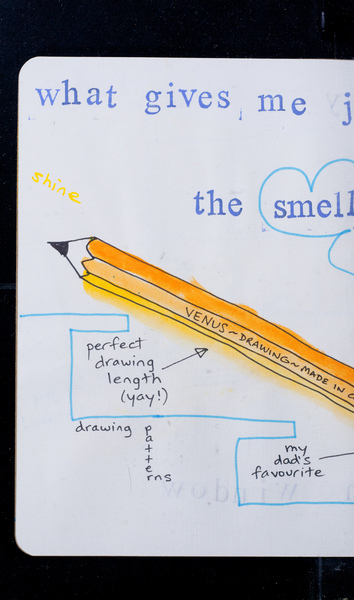 what gives me j
shine
the smell
VENUS ~ DRAWING ~ MADE IN
perfect
drawing
length
(yay!)
drawing patterns
my
dad's
favourite